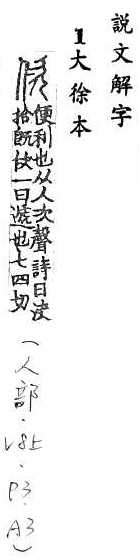 說文解字
1大徐本
佽便利也从人次聲詩曰決
拾既佽一曰遞也七四切
(人部.V8上.P3.A3)